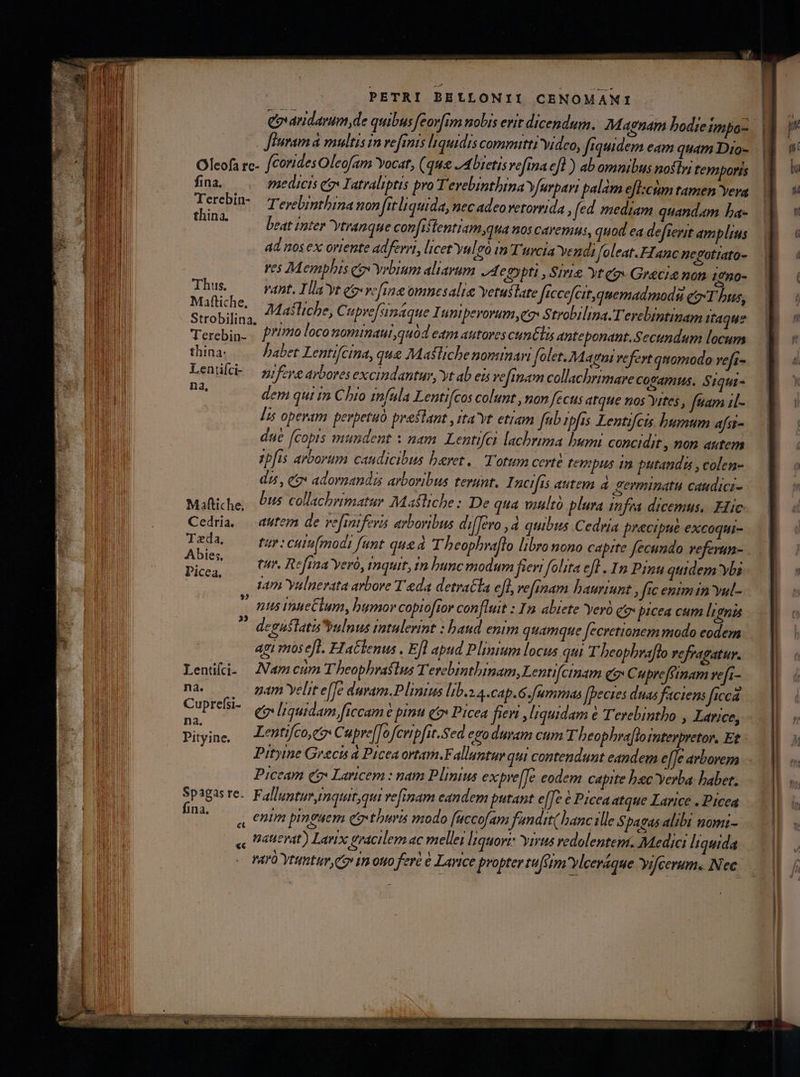 PETRI BELLONII CENOMANI
& aridarum, de quibus seorsim nobis erit dicendum. Magnam hodie impo-
sturam à multis in resinis liquidis committi video, siquidem eam quam Dio-
Oleosa re- scorides Oleosam vocat, (quæ Abietis resina est) ab omnibus nostri temporis
sina. medicis & Iatraliptis pro Terebinthina vsurpari palàm est: cùm tamen vera
Terebin- Terebinthina non sit liquida, nec adeo retorrida, sed mediam quandam ha-
thina. beat inter vtranque consistentiam, qua nos caremus, quod ea desierit amplius
ad nos ex oriente adferri, licet vulgò in Turcia vendi soleat. Hanc negotiato-
res Memphis & vrbium aliarum Aegypti, Siriæ vt & Græciæ non igno-
Thus. rant. Illa vt & resinæ omnes aliæ vetustate siccescit, quemadmodũ & Thus,
Mastiche. Mastiche, Cupressinaque Iuniperorum, & Strobilina. Terebintinam itaque
Strobilina,
Terebin- primo loco nominaui, quòd eam autores cunctis anteponant. Secundum locum
thina. habet Lentiscina, quæ Mastiche nominari solet. Magni refert quomodo resi-
Lentisci- niferæ arbores excindantur, vt ab eis resinam collachrimare cogamus. Siqui-
na. dem qui in Chio insula Lentiscos colunt, non secus atque nos vites, suam il-
lis operam perpetuò præstant, ita vt etiam sub ipsis Lentiscis humum assi-
duè scopis mundent: nam Lentisci lachrima humi concidit, non autem
ipsis arborum caudicibus hæret. Totum certè tempus in putandis, colen-
dis, & adornandis arboribus terunt. Incisis autem à germinatu caudici-
Mastiche. bus collachrimatur Mastiche: De qua multò plura infra dicemus. Hic
Cedria. autem de resiniferis arboribus dissero, à quibus Cedria præcipuè excoqui-
Tæda. tur: cuiusmodi sunt quæ à Theophrasto libro nono capite secundo referun-
Abies.
Picea. tur. Resina verò, inquit, in hunc modum fieri solita est. In Pinu quidem vbi
„ iam vulnerata arbore Tæda detracta est, resinam hauriunt, sic enim in vul-
„ nus inuectum, humor copiosior confluit: In abiete verò & picea cum lignis
„ degustatis vulnus intulerint: haud enim quamque secretionem modo eodem
agi mos est. Hactenus. Est apud Plinium locus qui Theophrasto refragatur.
Lentisci- Nam cùm Theophrastus Terebinthinam, Lentiscinam & Cupressinam resi-
na. nam velit esse duram. Plinius lib. 24. cap. 6. summas species duas faciens siccã
Cupressi- & liquidam, siccam è pinu & Picea fieri, liquidam è Terebintho, Larice,
na.
Pityine. Lentisco, & Cupresso scripsit. Sed ego duram cum Theophrasto interpretor. Et
Pityine Græcis à Picea ortam. Falluntur qui contendunt eandem esse arborem
Piceam & Laricem: nam Plinius expresse eodem capite hæc verba habet.
Spagas re- Falluntur, inquit, qui resinam eandem putant esse è Picea atque Larice. Picea
sina. „ enim pinguem & thuris modo succosam fundit (hanc ille Spagas alibi nomi-
„ nauerat) Larix gracilem ac mellei liquoris virus redolentem. Medici liquida
rarò vtuntur, & in ouo ferè è Larice propter tussim vlceráque viscerum. Nec